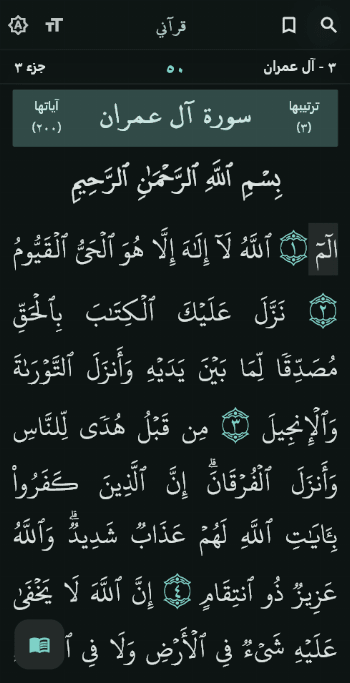 قرآني
٣ - آل عمران ٥٠ جزء ٣
ترتيبها (٣) سورة آل عمران آياتها (٢٠٠)
بِسْمِ ٱللَّهِ ٱلرَّحْمَٰنِ ٱلرَّحِيمِ
الٓمٓ ١ ٱللَّهُ لَآ إِلَٰهَ إِلَّا هُوَ ٱلْحَىُّ ٱلْقَيُّومُ
٢ نَزَّلَ عَلَيْكَ ٱلْكِتَٰبَ بِٱلْحَقِّ
مُصَدِّقًا لِّمَا بَيْنَ يَدَيْهِ وَأَنزَلَ ٱلتَّوْرَىٰةَ
وَٱلْإِنجِيلَ ٣ مِن قَبْلُ هُدًى لِّلنَّاسِ
وَأَنزَلَ ٱلْفُرْقَانَ ۗ إِنَّ ٱلَّذِينَ كَفَرُوا۟
بِـَٔايَٰتِ ٱللَّهِ لَهُمْ عَذَابٌ شَدِيدٌ ۗ وَٱللَّهُ
عَزِيزٌ ذُو ٱنتِقَامٍ ٤ إِنَّ ٱللَّهَ لَا يَخْفَىٰ
عَلَيْهِ شَىْءٌ فِى ٱلْأَرْضِ وَلَا فِى